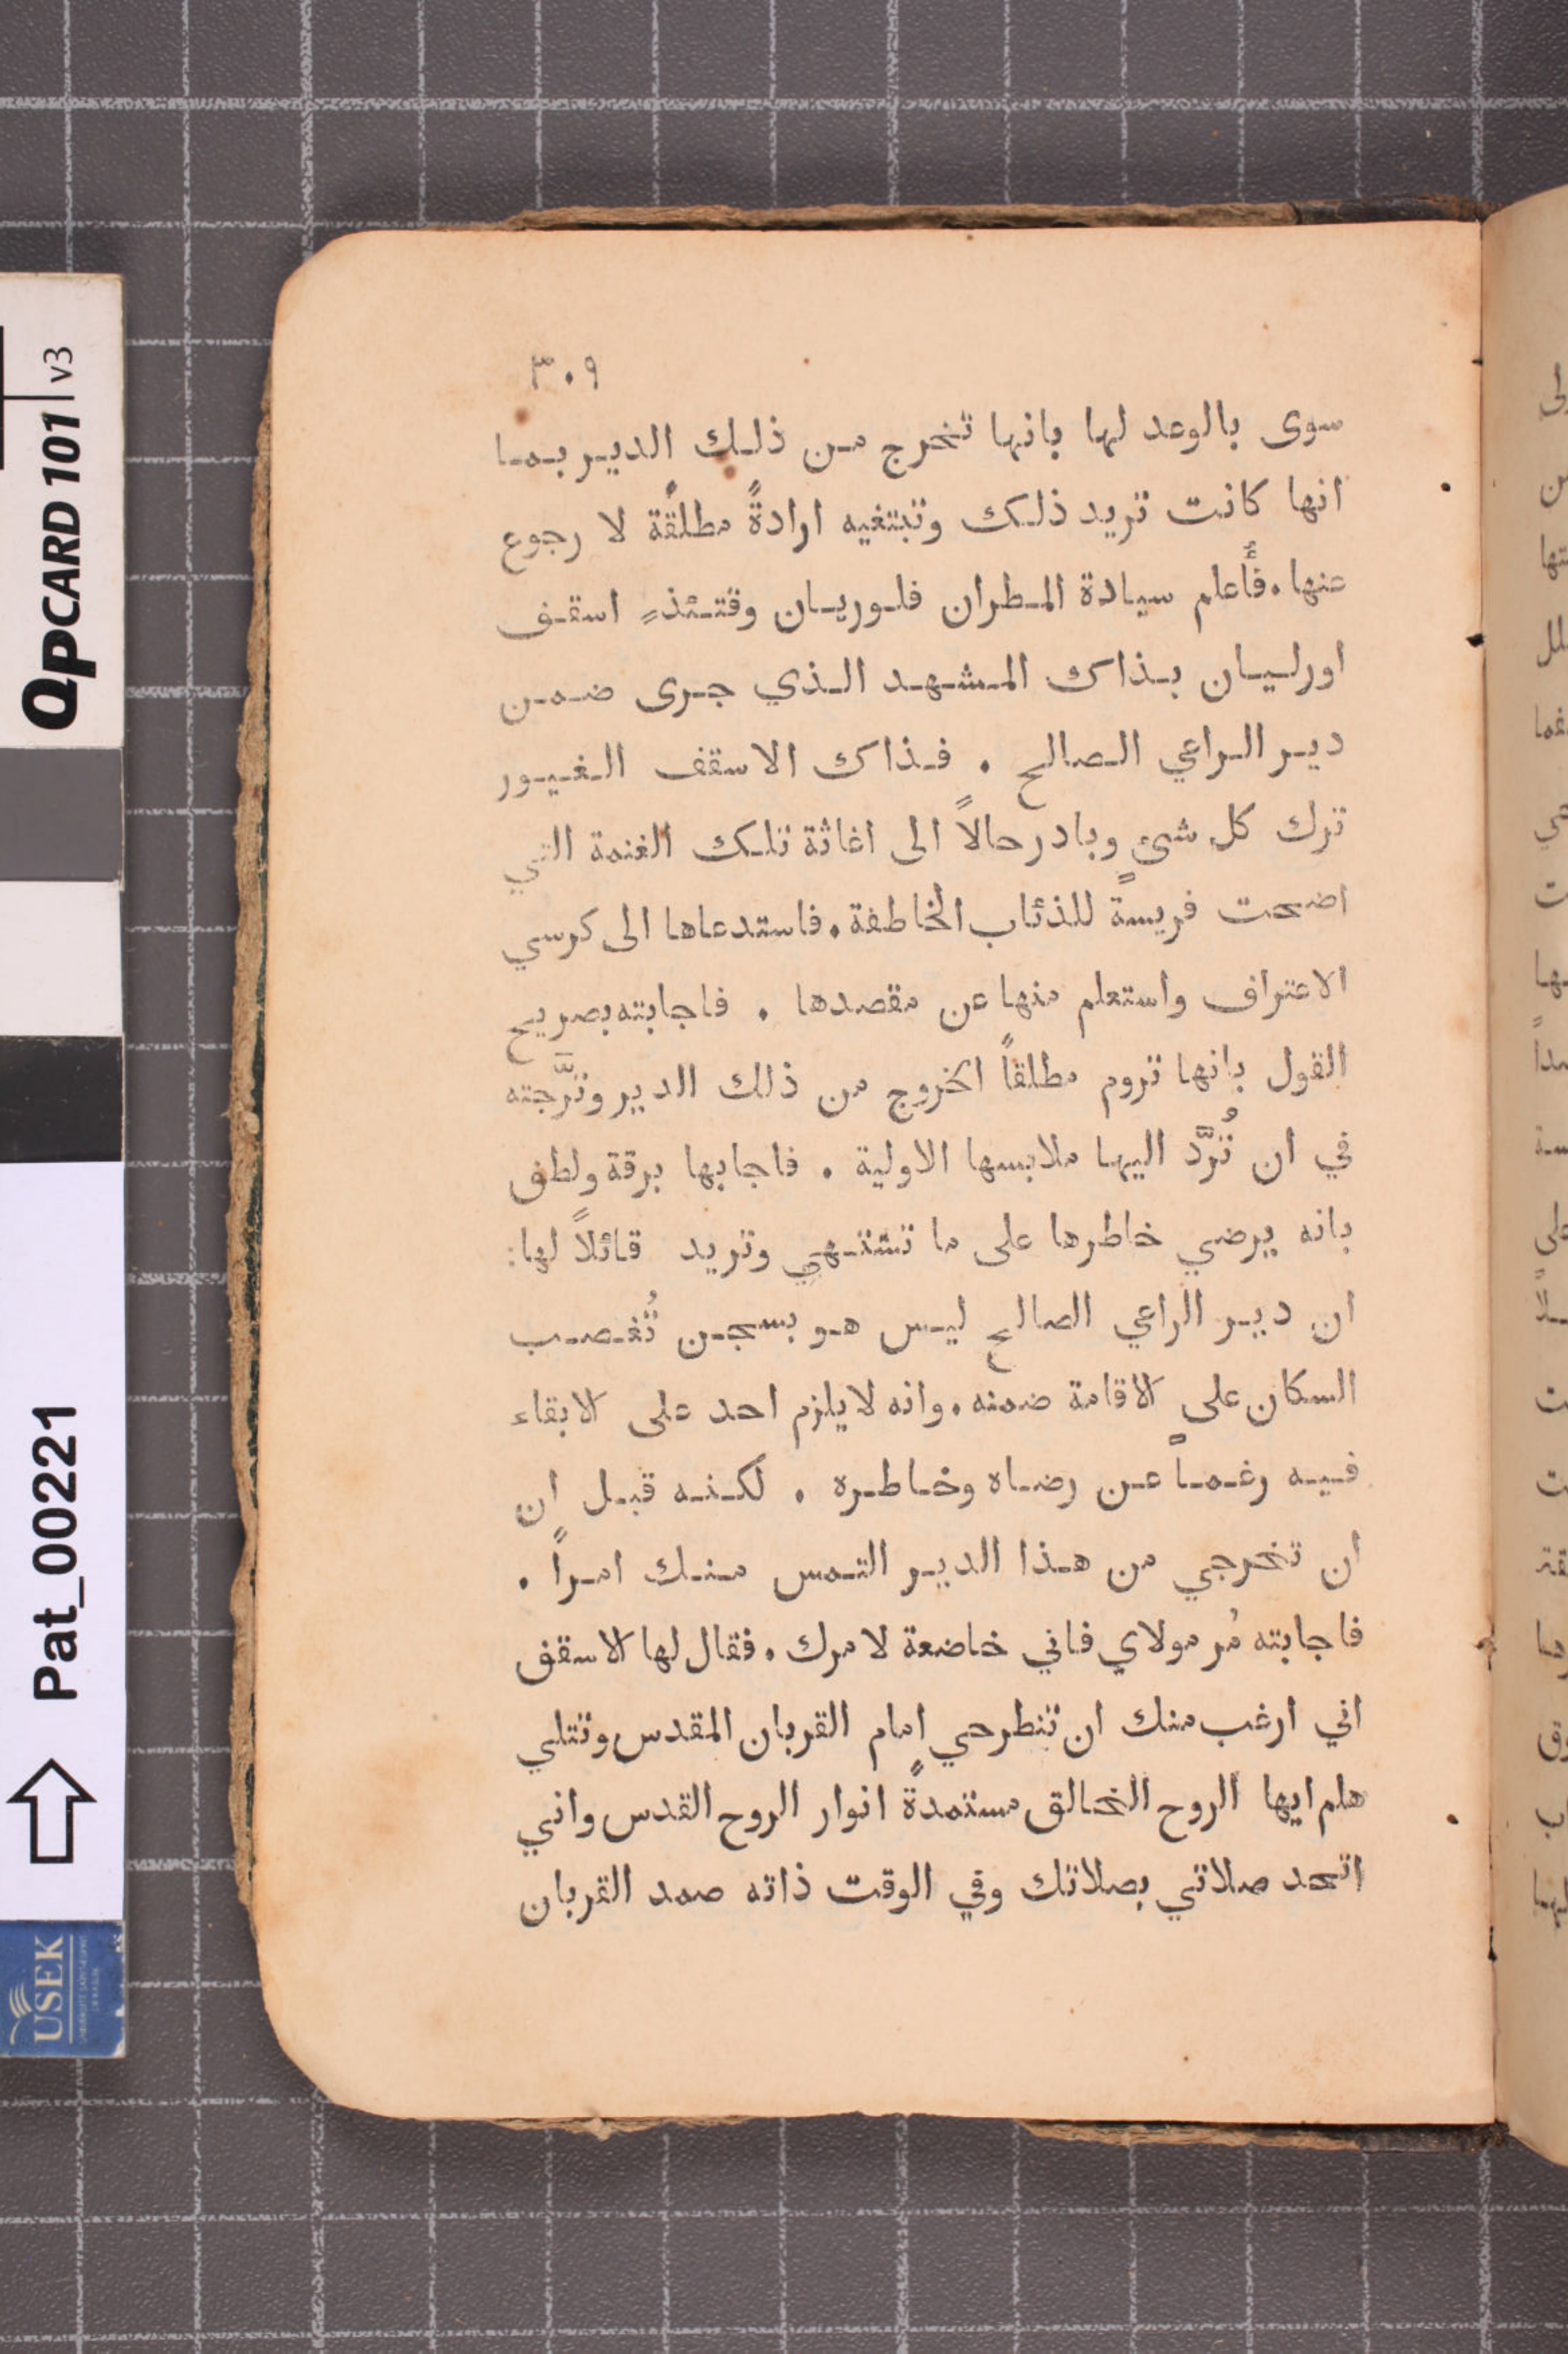 ٣٠٩
سوى بالوعد لها بانها تخرج من ذلك الدير بما
انها كانت تريد ذلك وتبتغيه ارادةً مطلقةً لا رجوع
عنها. فأُعلم سيادة المطران فلوريان وقتئذٍ اسقف
اورليان بذاك المشهد الذي جرى ضمن
دير الراعي الصالح . فذاك الاسقف الغيور
ترك كل شئ وبادر حالاً الى اغاثة تلك الغنمة التي
اضحت فريسةً للذئاب الخاطفة. فاستدعاها الى كرسي
الاعتراف واستعلم منها عن مقصدها . فاجابته بصريح
القول بانها تروم مطلقاً الخروج من ذلك الدير وترَّجته
في ان تُرَّد اليها ملابسها الاولية . فاجابها برقة ولطف
بانه يرضي خاطرها على ما تشتهي وتريد قائلاً لها:
ان دير الراعي الصالح ليس هو بسجن تُغصب
السكان على الاقامة ضمنه. وانه لا يلزم احد على الابقاء
فيه رغماً عن رضاه وخاطره . لكنه قبل ان
ان تخرجي من هذا الدير التمس منك امراً .
فاجابته مُر مولاي فاني خاضعة لامرك. فقال لها الاسقف
اني ارغب منك ان تنطرحي امام القربان المقدس وتتلي
هلم ايها الروح الخالق مستمدةً انوار الروح القدس واني
اتحد صلاتي بصلاتك وفي الوقت ذاته صمد القربان
QPCARD 101 v3
Pat_00221
USEK